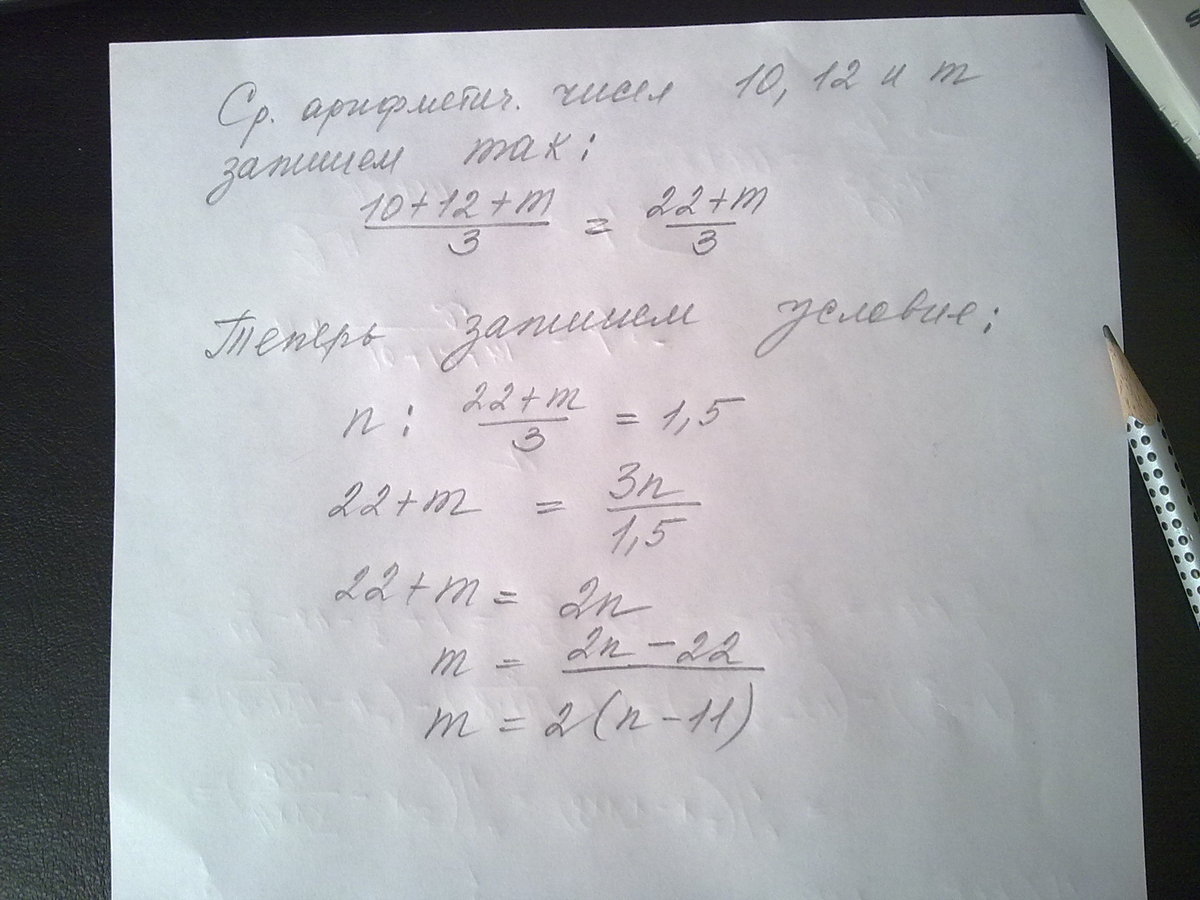 Ср. арифметич. чисел 10, 12 и m
запишем так:
(10+12+m)/3 = (22+m)/3
Теперь запишем условие:
n : (22+m)/3 = 1,5
22+m = 3n/1,5
22+m = 2n
m = 2n - 22
m = 2(n-11)